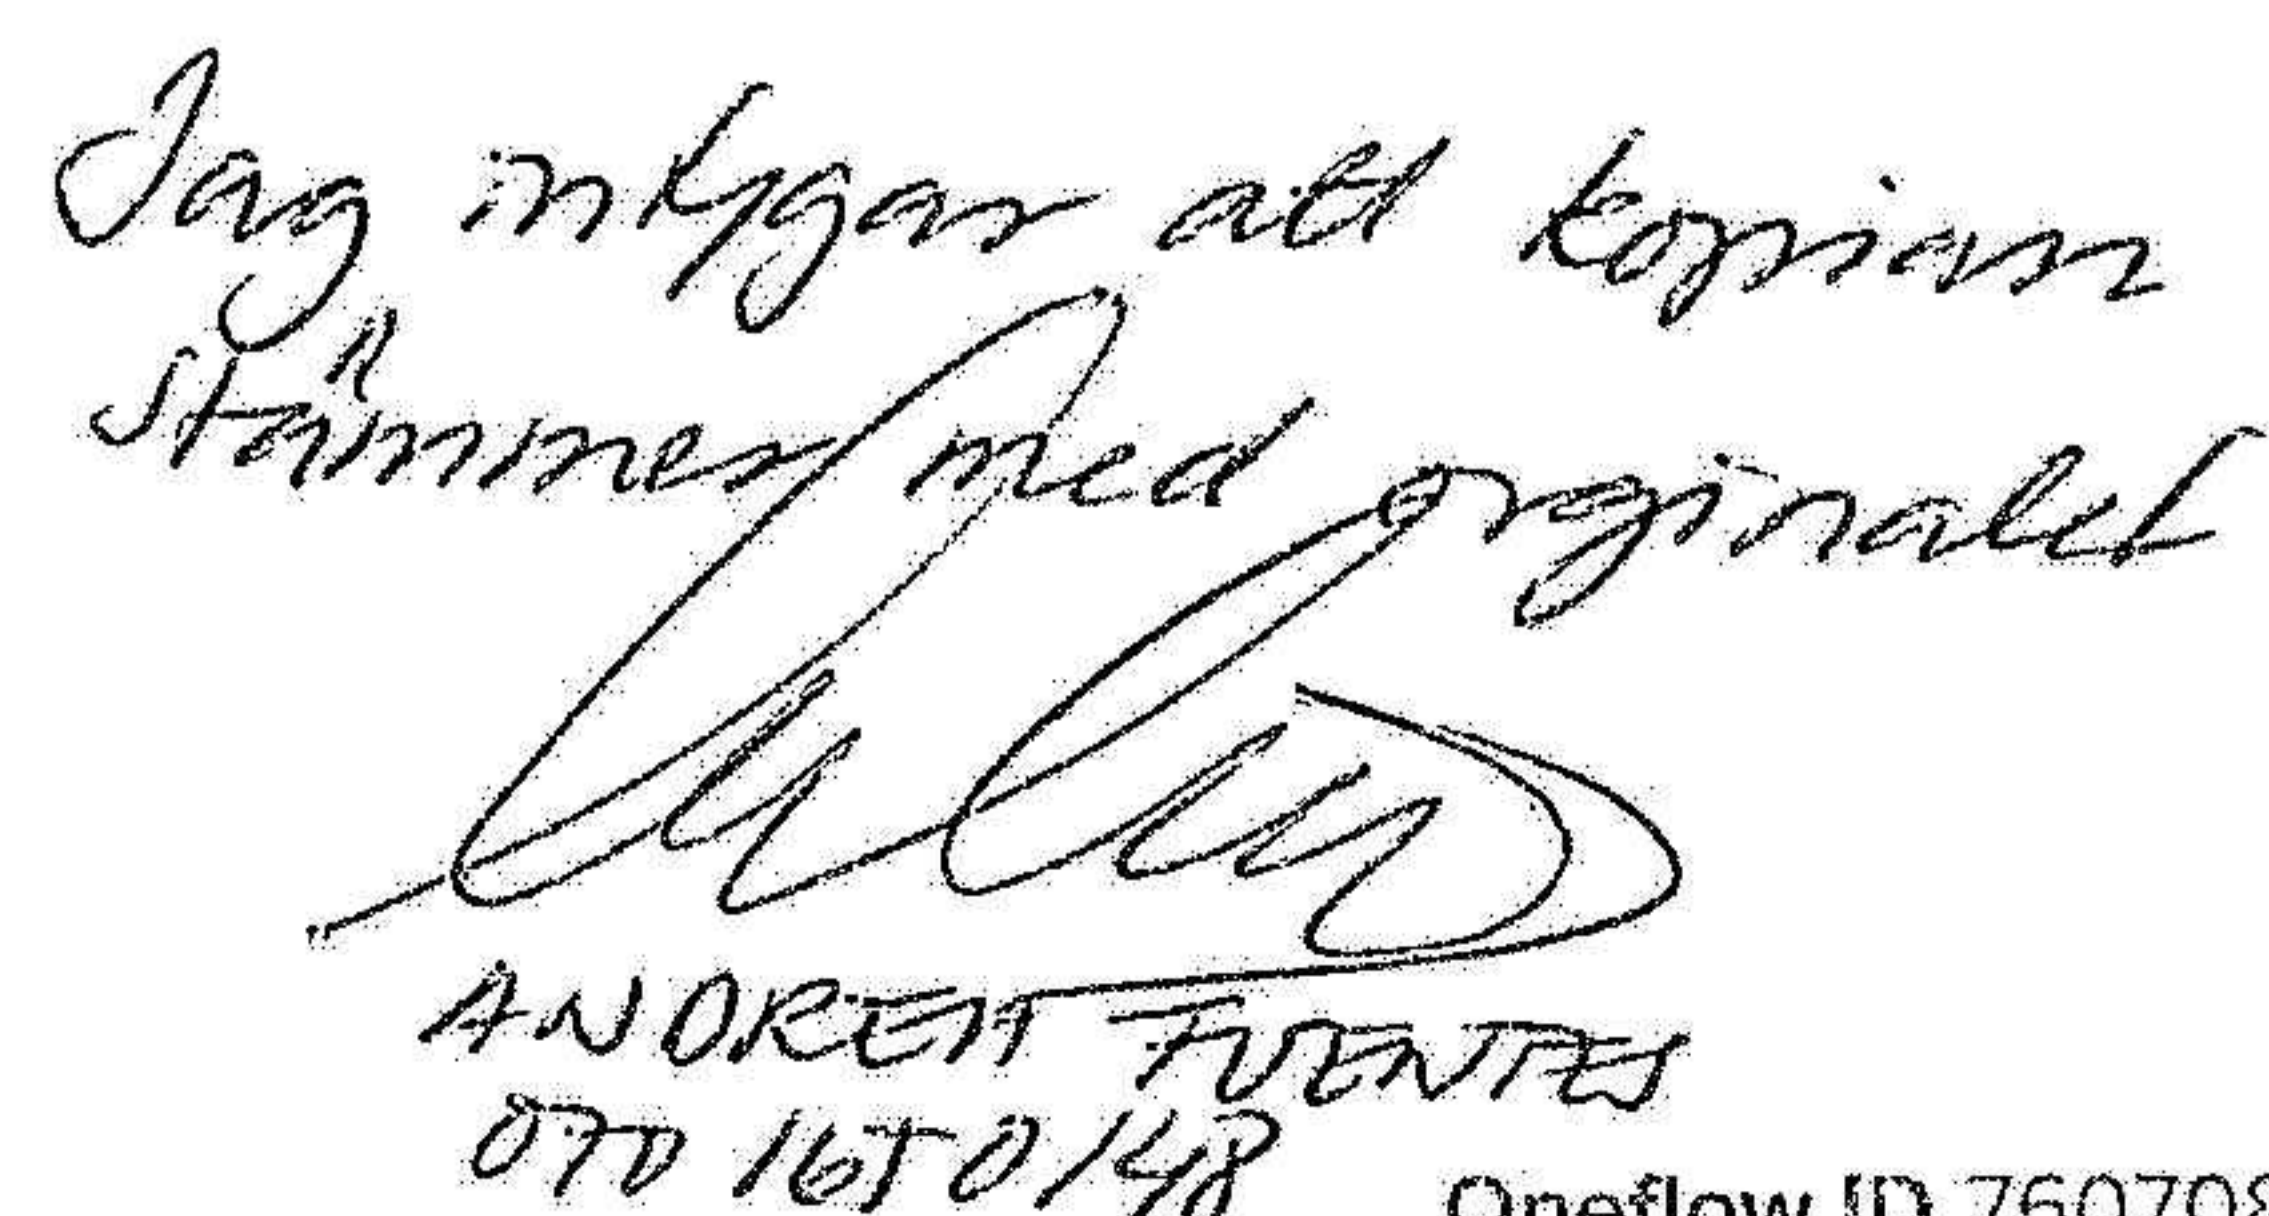 Jag intygar att kopian
stämmer med orginalet
ANDREA
070 165 0148
Oneflow ID 760708